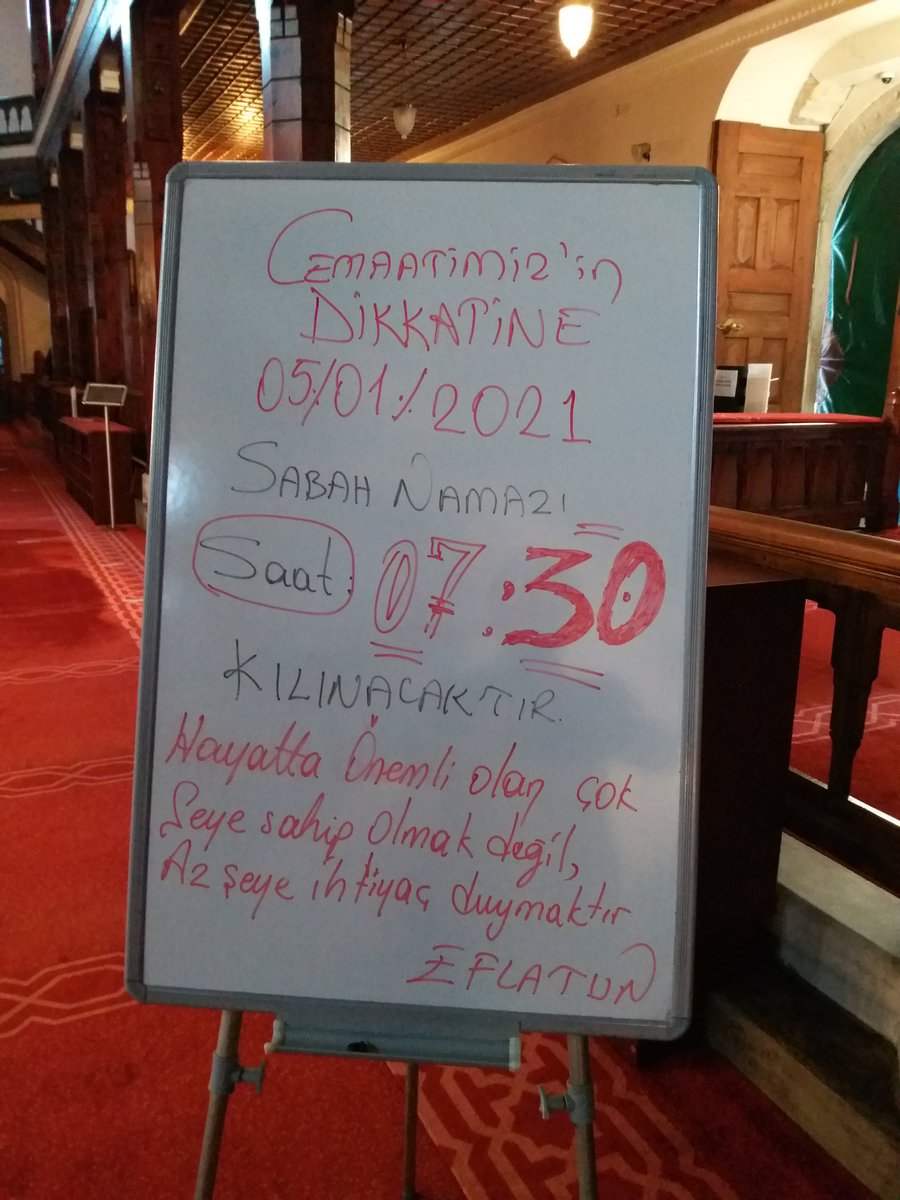 CEMAATİMİZ'in
DİKKATİNE
05/01/2021
SABAH NAMAZI
Saat: 07:30
KILINACAKTIR.
Hayatta Önemli olan çok
Şeye sahip olmak değil,
Az şeye ihtiyaç duymaktır
EFLATUN